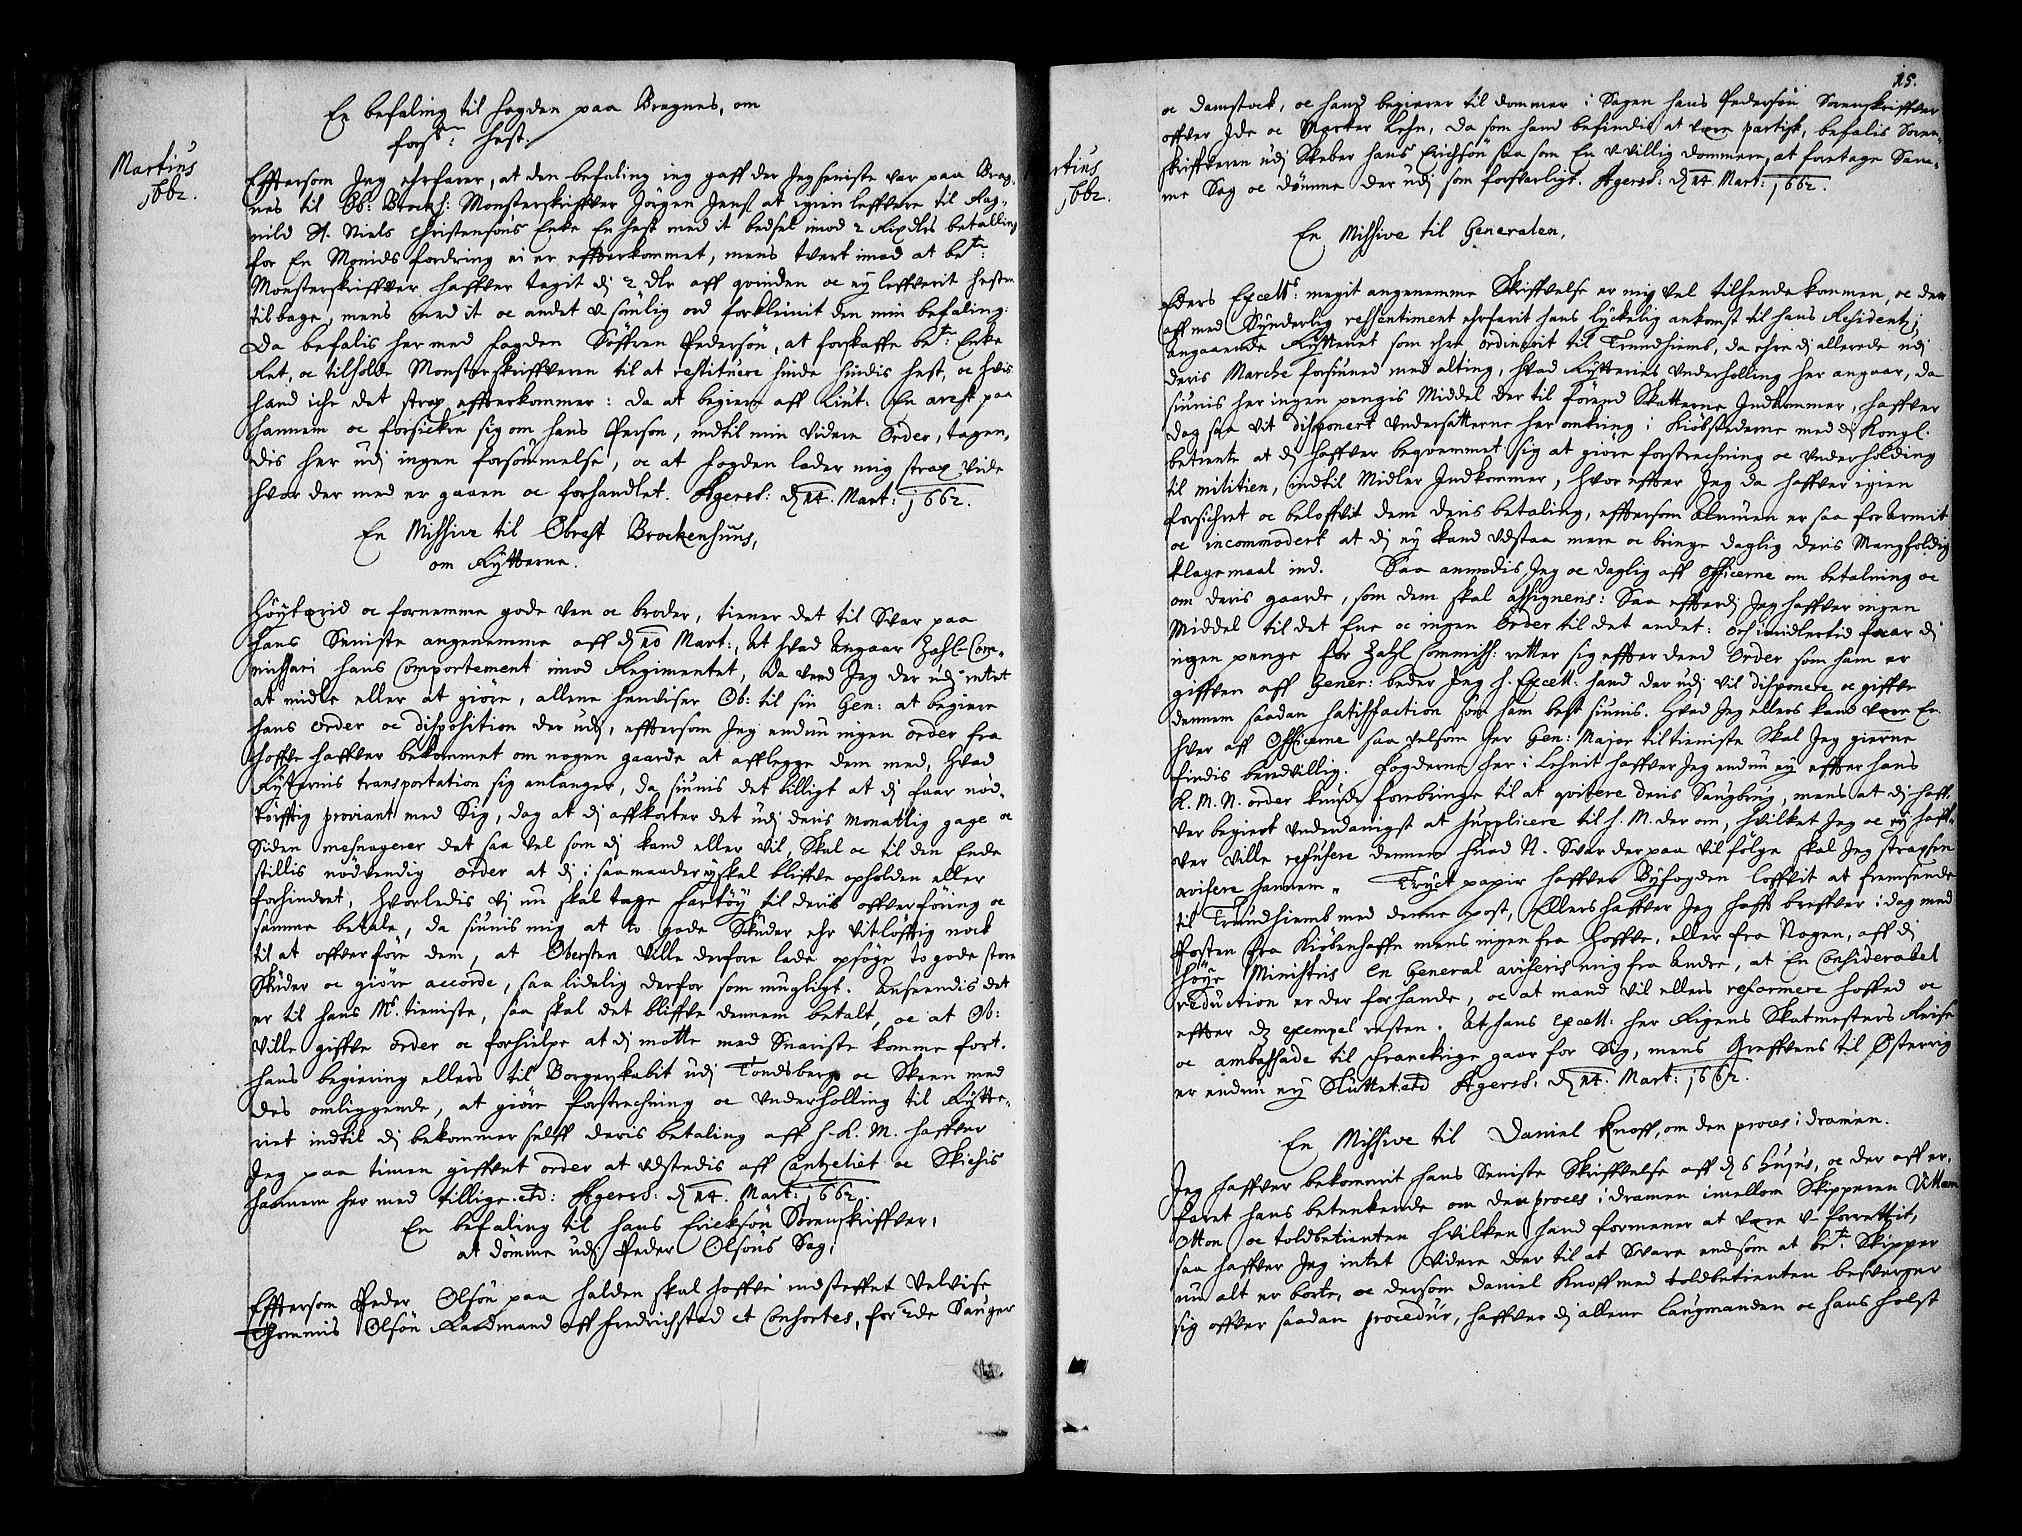 Martius
1662.
En befaling til fogden paa Bragnes, om
fors: hest.
Effttersom Jeg ehrfarer, at den befaling ieg gaff der Jeg seniste var paa Brag-
nes til Ob: Brockh: Mønsterskriffver Jörgen Jens: at igien leffvere til Rag-
nild Sl. Niels Christensöns Encke En hest med it bedsel imod 2 Rixdlrs betalling
for En Monids fordring ei er effterkommet, mens tvert imod at bete:
Monsterskriffver haffver tagit dj 2 dlr aff qvinden oc ey leffverit hesten
tilbage, mens med it oc andet u-sömlig ord forkleinit den min befaling:
Da befalis her med fogden Söffren Pedersön, at forskaffe bete: Encke
Ret, oc tilholde Monsterskriffveren til at restituere hinde hindis hest, oc hvis
hand iche det strax effterkommer: da at begiere aff Liut: En arrest paa
hannem oc forsickre sig om hans Person, indtil min videre Order, tagen-
dis her udj ingen forsömmelse, oc at fogden lader mig strax vide
hvor der med er gaaen oc forhandlet. Agersh: d 14. Mart: 1662.
En Missive til Obrest Brockenhuus,
om Rytterne.
Höytærid oc fornemme gode Ven oc broder, tiener det til Svar paa
hans Seniste angenemme aff d 10 Mart:, At hvad Angaar Zahl-Com-
missari hans Comportement imod Regimentet, da veed Jeg der udj intet
at midle eller at giöre, allene henviser Ob: til sin Gen: at begiere
hans order oc disposition der udj, effttersom Jeg endnu ingen order fra
hoffve haffver bekommet om nogen gaarde at afflegge dem med, hvad
Rytternis transportation sig anlanger, da siunis det billigt at dj faar nöd-
törfftig proviant med Sig, dog at dj affkorter det udj deris Monatlig gage oc
Siden mesnagerer det saa vel som dj kand eller vil, Skal oc til den Ende
stillis nödvendig order at dj i saa maader ey skal bliffve opholden eller
forhindret, hvorledis vj nu skal tage fartöy til deris offverföring oc
samme betale, da siunis mig at to gode Skuder ehr vitlöfftig nock
til at offverföre dem, at Obersten Ville derfore lade opsöge to gode store
Skuder oc giöre accorde, saa lidelig derfor som mugligt. Anseendis det
er til hans Mt. tieniste, saa skal det bliffve dennem betalt, oc at Ob:
Ville giffve order oc forhielpe at dj motte med Snariste komme fort.
hans begiering ellers til Borgerskabit udj Tönsberg oc Skeen med
des omliggende, at giöre forstrechning oc Underholling til Rytte-
riet indtil dj bekommer selff deris betaling aff H. K. M. haffver
Jeg paa timen giffvet order at Udstedis aff Cantzeliet oc Skickis
hannem her med tillige. etc: Agersh: d 14. Mart: 1662.
En befaling til hans Ericksön Sorenskriffver,
at dömme udj Peder Olsöns Sag,
Effttersom Peder Olsön paa halden skal haffve indsteffnet Velvise
Thommis Olsön Raadmand aff fredrichstad et Consortes, for 2de Sauger
15.
rtius
1662.
oc damstock, oc hand begierer til dommer i Sagen hans Pedersön Sorenskriffver
offver Ide oc Marker Lehn, da som hand befindis at være partisk, befalis Soren-
skriffveren udj Skeber hans Erichsön saa som En U-villig dommere, at foretage Sam-
me Sag oc dömme der udj som forsvarligt. Agersh: d 14 Mart: 1662.
En Missive til Generalen,
Eders Excells: megit angenemme Skriffvelse er mig vel tilhende kommen, oc der
aff med Synderlig ressentiment ehrfarit hans lyckelig ankomst til hans Residentz;
Angaaende Rytteriet som ehre ordinerit til Trundhiemb, da ehre dj allerede udj
deris Marche forsiuned med alting, hvad Rytteries Underholling her angaar, da
siunis her ingen pengis Middel der til förend Skatterne Indkommer, haffver
dog saa vit disponert Undersatterne her omkring i Kiöbstederne med dj Kongl.
betiente at dj haffver beqvemmet sig at giöre forstrechning oc Underholding
til militien, indtil Midler Indkommer, hvor effter Jeg da haffver igien
forsichret oc beloffvit dem deris betaling, effttersom Almuen er saa forarmit
oc incommodert at dj ey kand Udstaa mere oc bringe daglig deris Mangfoldig
klagemaal ind. Saa anmodis Jeg oc daglig aff officerne om betalning oc
om deris gaarde, som dem skal assignens: Saa effterdj Jeg haffver ingen
Middel til det Ene oc ingen order til det andet: och imidlertid faar dj
ingen penge for Zahl Commiss: retter sig effter dend order som ham er
giffven aff Gener: beder Jeg H. Excell: hand der udj vil disponere oc giffve
dennem saadan satisfaction som ham best siunis. Hvad Jeg ellers kand være En
hver aff Officerne saa velsom her Gen: Major til tieniste skal Jeg gierne
findis beredvillig. Fogderne her i Lehnit haffver Jeg endnu ey effter hans
K. M. N. order kunde forebringe til at qvitere deris Saugbrug, mens at dj haff-
ver begiert Underdanigst at supplicere til H. M. der om, hvilket Jeg oc ey haff-
ver Ville refusere dennem hvad N. Svar der paa vil fölge skal Jeg straxsen
avisere hannem. Tryct papir haffver Byfogden loffvit at fremsende
til Trundhiemb med denne post, Ellers haffver Jeg hafft breffver i dag med
Posten fra Kiöbenhaffn mens ingen fra hoffve, eller fra Nogen aff dj
höye Ministris En General aviseris mig fra andre, at En Considerabel
reduction er der forhande, oc at mand vil ellers reformere hoffed oc
effter dz exempel resten. At hans Excell: her Rigens Skatmesters Reise
oc ambassade til Franckrige gaar for Sig, mens Greffvens til Österrig
er endnu ey Sluttet. etc Agersh: d 14. Mart: 1662.
En Missive til Daniel Knoff, om den proces i dramen.
Jeg haffver bekommit hans Seniste Skriffvelse aff d 6 hujus, oc der aff er-
faret hans betenckende om den proces i dramen imellom Skipperen Villum
Otton oc toldbetienten hvilken hand formener at være U-forrettzit,
saa haffver Jeg intet Videre der til at Svare end som at bete: Skipper
nu alt er borte, oc dersom Daniel Knoff med toldbetienten besverger
sig offver saadan procedur, haffver dj allene laugmanden oc hans holst